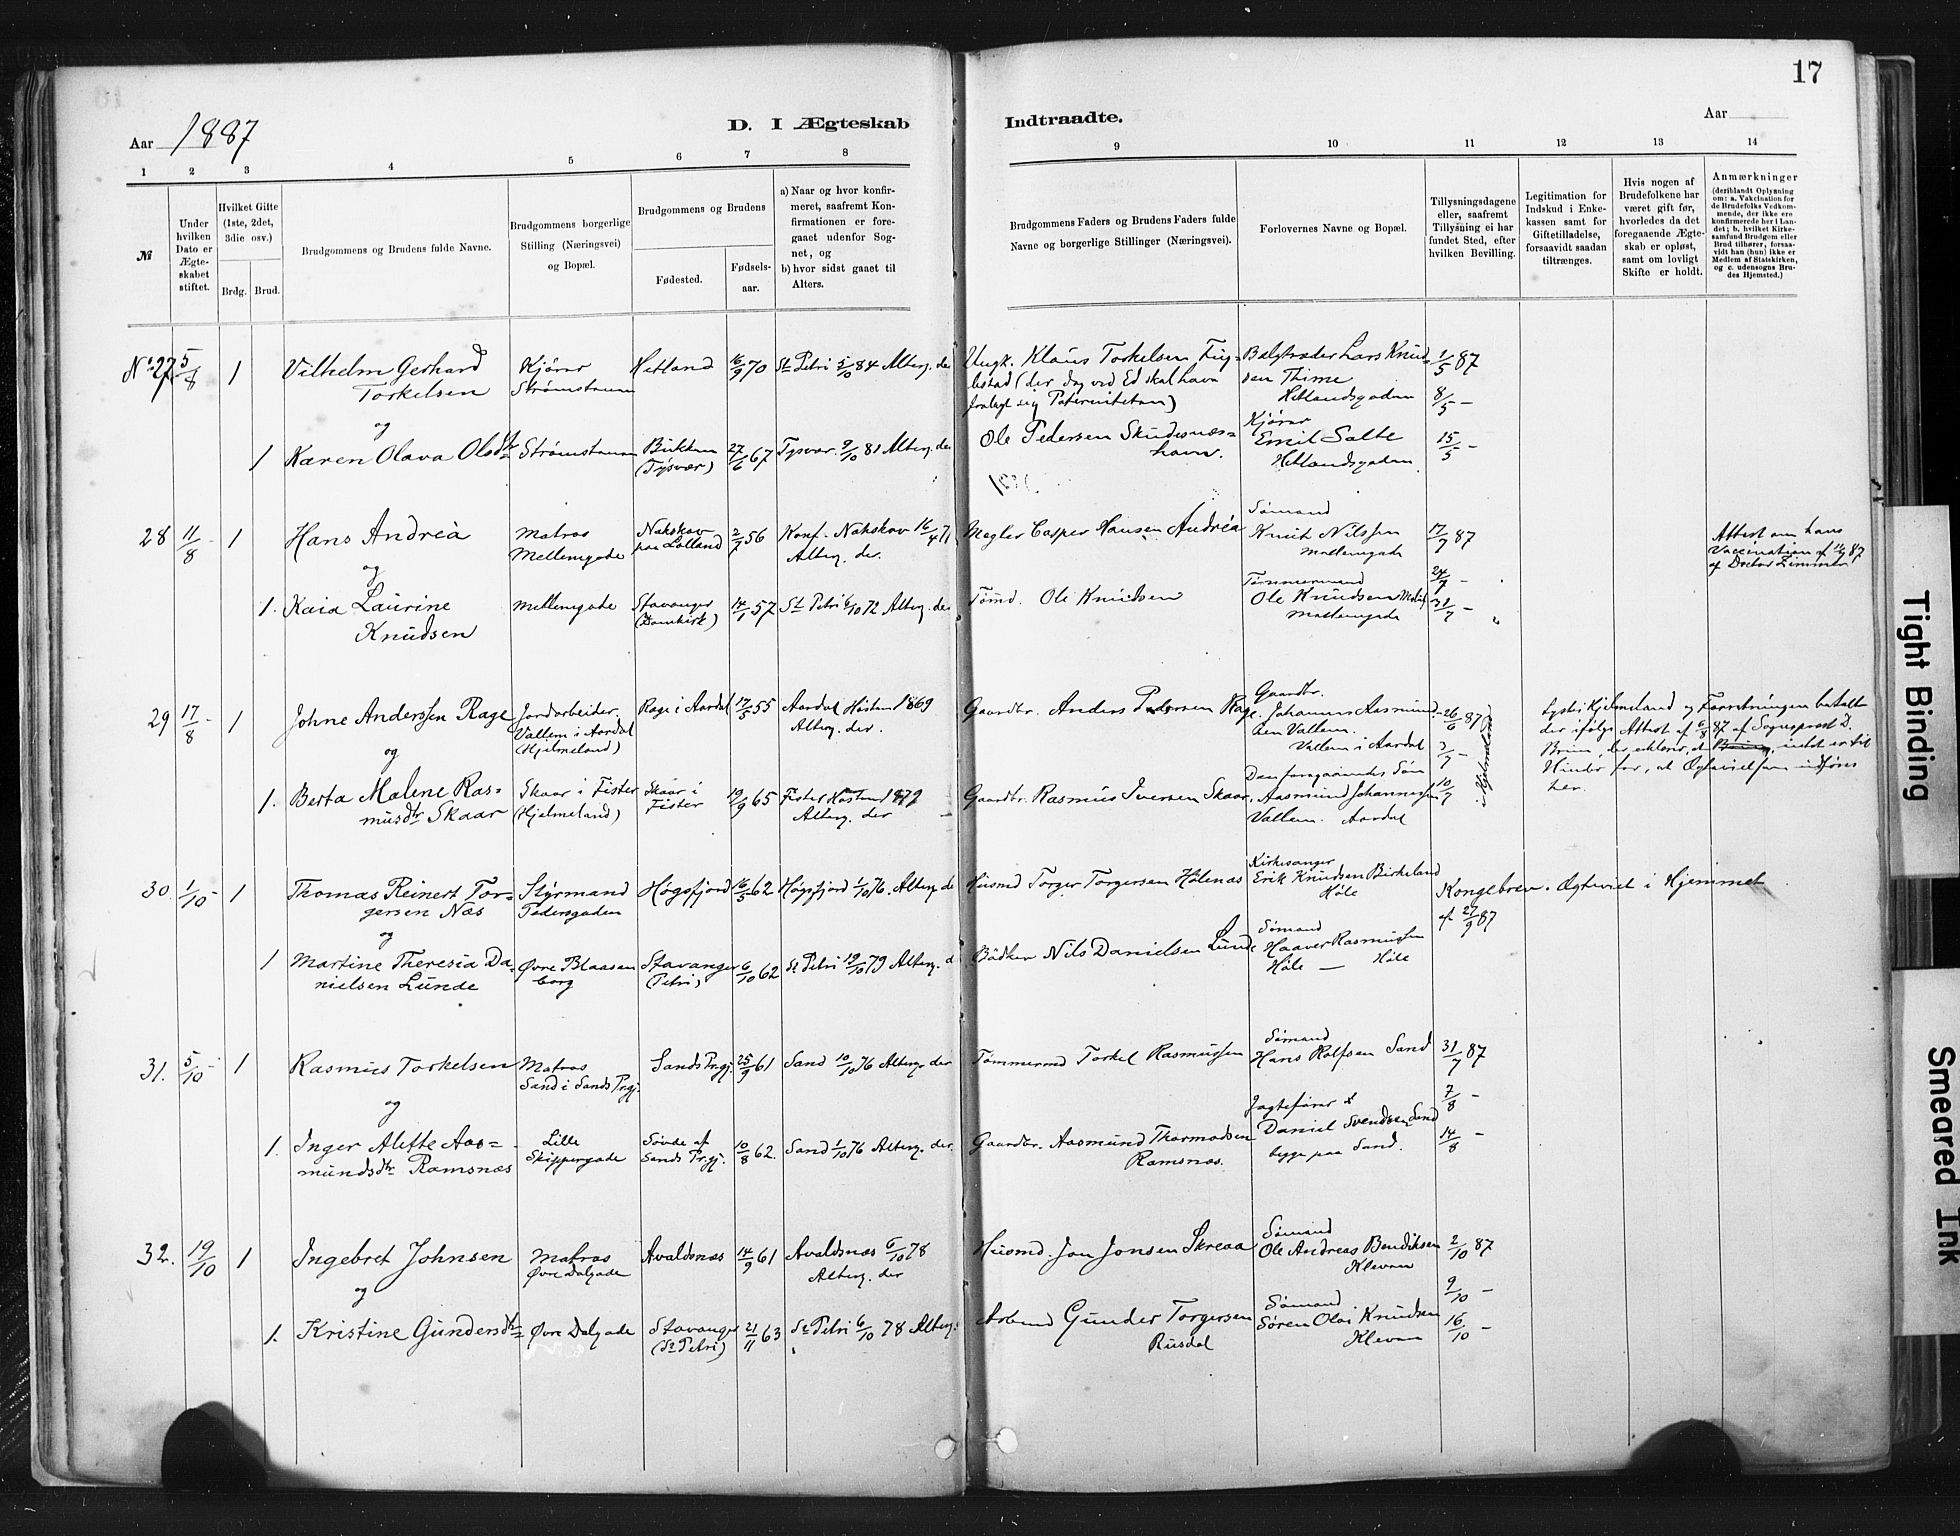 17
Aar 1887
D. I Ægteskab
Indtraadte.
Aar
1 2 3 4 5 6 7 8
9 10 11 12 13 14
№
Under hvilken Dato er Ægteskabet stiftet.
Hvilket Gifte (1ste, 2det, 3die osv.)
Brdg. Brud.
Brudgommens og Brudens fulde Navne.
Brudgommens borgerlige Stilling (Næringsvei) og Bopæl.
Brudgommens og Brudens
Fødested.
Fødsels-aar.
a) Naar og hvor konfirmeret, saafremt Konfirmationen er foregaaet udenfor Sognet, og
b) hvor sidst gaaet til Alters.
Brudgommens Faders og Brudens Faders fulde Navne og borgerlige Stillinger (Næringsvei).
Forlovernes Navne og Bopæl.
Tillysningsdagene eller, saafremt Tillysning ei har fundet Sted, efter hvilken Bevilling.
Legitimation for Indskud i Enkekassen samt for Giftetilladelse, forsaavidt saadan tiltrænges.
Hvis nogen af Brudefolkene har været gift før, hvorledes da det foregaaende Ægteskab er opløst, samt om lovligt Skifte er holdt.
Anmærkninger
(deriblandt Oplysning om: a. Vakcination for de Brudefolks Vedkommende, der ikke ere konfirmerede her i Landet; b. hvilket Kirkesamfund Brudgom eller Brud tilhører, forsaavidt han (hun) ikke er Medlem af Statskirken, og c. udensogns Brudes Hjemsted.)
No 27 5/8 1 Vilhelm Gerhard Torkelsen Kjører Strømsteen Hetland 16/9 70 St Petri 5/10 84 Alterg. der
Ungk. Klaus Torkelsen (der dog ved Ed skal have fralagt sig Paterniteten)
Lars Knudsen Thime Hetlandsgaden 1/5 87
8/5 –
og
1 Karen Olava Olsdtr Strømsteen (Tysvær) 27/6 67 Tysvær 2/10 81 Alterg. der
Ole Pedersen Skudesneshavn.
Kjører Emil Salte Hetlandsgaden 15/5 –
28 11/8 1 Hans Andréa Matros Mellemgade Nakskov paa Lolland 2/7 56 Konf. Nakskov 16/4 71 Alterg. der.
Megler Casper Hansen Andréa
Sømand Knut Nilssen Mellemgade 17/7 87
Attest om hans Vaccination af 11/7 87 af Doctor Zimmer
og
1. Kaia Laurine Knudsen Mellemgade Stavanger (Domkirk) 14/1 57 St Petri 6/10 72 Alterg. der
Tømd. Ole Knudsen
Tømmermand Ole Knudsen Mellemgade 24/7 –
31/7 –
29 17/8 1 Johne Anderssen Rage Jordarbeider. Vallem i Aardal (Hjelmeland) Rage i Aardal 17/5 55 Aardal Høsten 1869 Alterg. der.
Gaardbr. Anders Pedersen Rage.
Gaardbr. Johannes Aasmundsen Vallem. Vallem i Aardal 26/6 87
3/7 –
i Hjelmeland
Lyst i Hjelmeland og Forretningen betalt der ifølge Attest af 6/8 87 af Sogneprest D. Bruun, der erklærer, at intet er til Hinder for, at Ægtevielsen udføres her.
og
1. Berta Malene Rasmusdtr Skaar Skaar i Fister (Hjelmeland) Skaar i Fister 19/9 65 Fister Høsten 1879 Alterg. der
Gaardbr. Rasmus Iversen Skaar.
Den foregaaendes Søn Aasmund Johannessen Vallem. Aardal 10/7
30 1/10 1 Thomas Reinert Torgersen Næs Styrmand Pedersgaden Høgsfjord 16/5 62 Høgsfjord 1/10 76 Alterg. der
Husmd Torger Torgersen Hølenæs
Kirkesanger Erik Knudsen Birkeland Høle
Kongebrev af 27/9 87. Ægteviet i Hjemmet
og
1 Martine Theresia Danielsen Lunde Øvre Blaasenborg Stavanger (Petri) 6/10 62 St Petri 19/10 79 Alterg. d
Bødker Nils Danielsen Lunde
Sømand Haaver Rasmussen Høle – Høle
31. 5/10 1 Rasmus Torkelsen Matros Sand i Sands Prgj. Sands Prgj. 25/9 61 Sand 10/10 76 Alterg. der
Tømmermd Torkel Rasmussen
Sømand Hans Rolfsen Sand 31/7 87
7/8 –
og
1. Inger Alette Aasmundsdtr Ramsnæs Lille Skippergade Søvde af Sands Prgj. 10/8 62. Sand 1/10 76 Alterg. der
Gaardbr. Aasmund Thormodsen Ramsnæs.
Jagtefører Daniel Svendsen Sand begge paa Sand. 14/8 –
32. 19/10 1 Ingebret Johnsen Matros Øvre Dalgade Avaldsnæs 14/9 61 Avaldsnæs 6/10 78 Alterg. der
Husmd. Jon Jonsen Skreaa
Sømand Ole Andreas Bendiksen Kleven 2/10 87
9/10 –
og
1. Kristine Gundersdtr Øvre Dalgade Stavanger (St Petri) 21/11 63 St Petri 6/10 78 Alterg.
Arbmd Gunder Torgersen Rusdal
Sømand Søren Olai Knudsen Kleven 16/10 –
Tight Binding
Smeared Ink